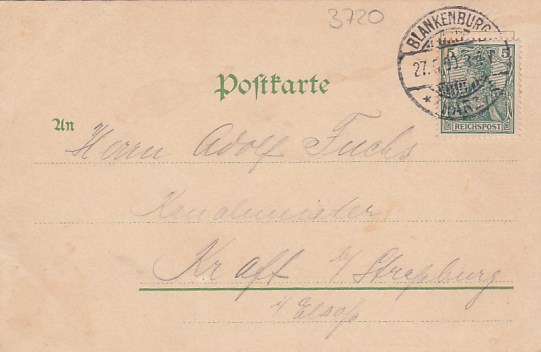 3720
BLANKENBURG
HARZ
5 5
REICHSPOST
Postkarte
An
Herrn Adolf Fuchs
Kraft b/ Straßburg
i/ Elsaß